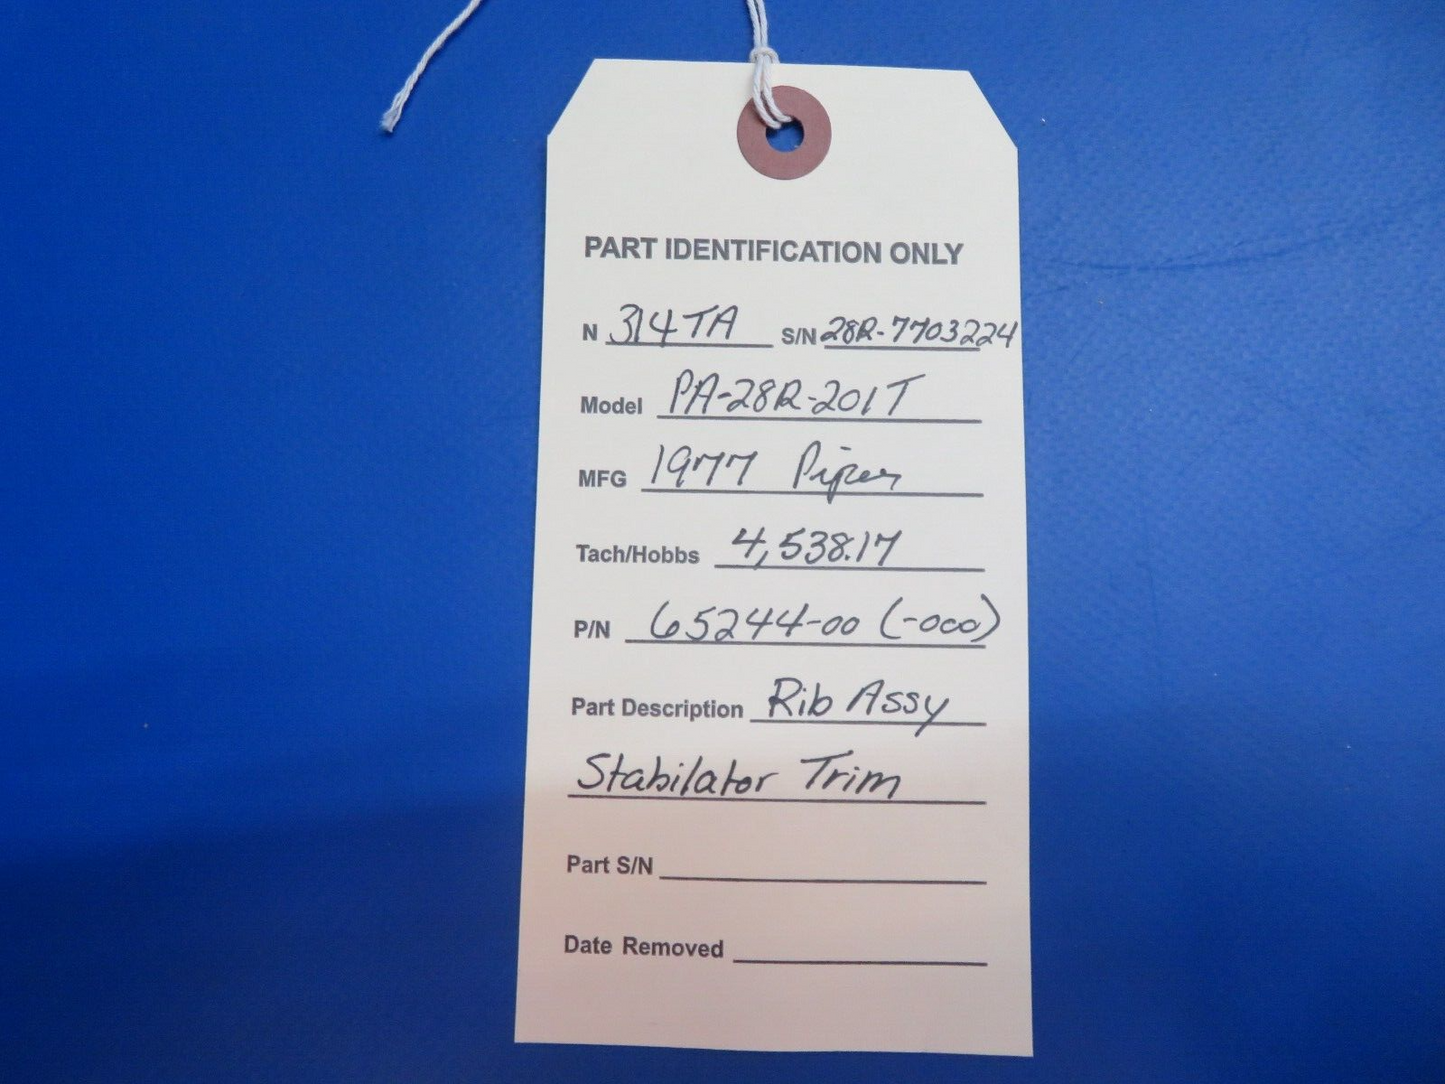 PART IDENTIFICATION ONLY
N 314TA S/N 28R-7703224
Model PA-28R-201T
MFG 1977 Piper
Tach/Hobbs 4,538.17
P/N 65244-00 (-000)
Part Description Rib Assy
Stabilator Trim
Part S/N
Date Removed